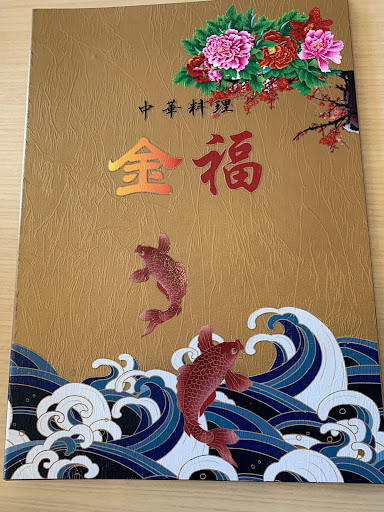 中華料理
金福